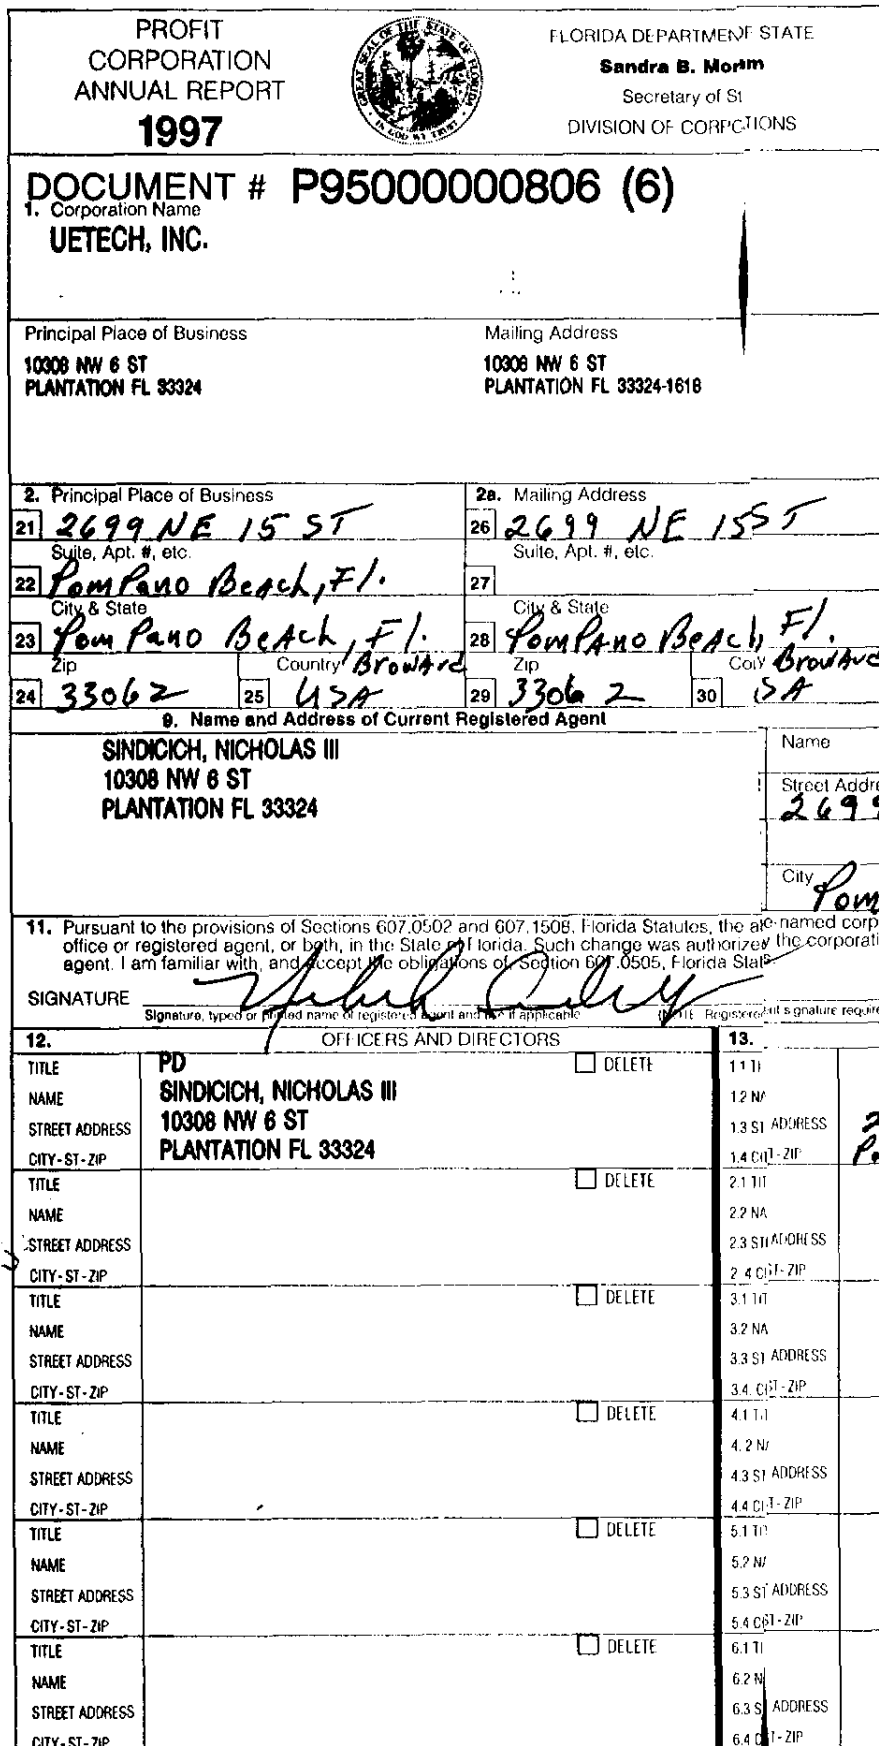 PROFIT
CORPORATION
ANNUAL REPORT
1997
GREAT SEAL OF THE STATE OF FLORIDA
IN GOD WE TRUST
FLORIDA DEPARTMENT STATE
Sandra B. Mor
Secretary of St
DIVISION OF CORP TIONS
DOCUMENT # P95000000806 (6)
1. Corporation Name
UETECH, INC.
Principal Place of Business
10308 NW 6 ST
PLANTATION FL 33324
Mailing Address
10308 NW 6 ST
PLANTATION FL 33324-1618
2. Principal Place of Business
21 2699 NE 15 ST
Suite, Apt. #, etc.
22 PomPano Beach, Fl.
City & State
23 Pom Pano Beach, Fl.
Zip
24 33062
Country Broward
25 USA
2a. Mailing Address
26 2699 NE 15 ST
Suite, Apt. #, etc.
27
City & State
28 PomPano Beach, Fl.
Zip
29 33062
Broward
30 SA
9. Name and Address of Current Registered Agent
SINDICICH, NICHOLAS III
10308 NW 6 ST
PLANTATION FL 33324
Name
Street Addre
2699
City
Pom
11. Pursuant to the provisions of Sections 607.0502 and 607.1508, Florida Statutes, the named corp
office or registered agent, or both, in the State of Florida. Such change was authorize the corporati
agent. I am familiar with, and accept the obligations of, Section 607.0505, Florida Stat
SIGNATURE
Signature, typed or printed name of registered agent and title if applicable (NOTE Registere signature require
12. OFFICERS AND DIRECTORS 13.
TITLE PD DELETE 1.1 TI
NAME SINDICICH, NICHOLAS III 1.2 NA
STREET ADDRESS 10308 NW 6 ST 1.3 ST ADDRESS 2
CITY-ST-ZIP PLANTATION FL 33324 1.4 CIT-ZIP Po
TITLE DELETE 2.1 TIT
NAME 2.2 NA
STREET ADDRESS 2.3 ST ADDRESS
CITY-ST-ZIP 2.4 CIT-ZIP
TITLE DELETE 3.1 TIT
NAME 3.2 NA
STREET ADDRESS 3.3 ST ADDRESS
CITY-ST-ZIP 3.4. CIT-ZIP
TITLE DELETE 4.1 TI
NAME 4.2 NA
STREET ADDRESS 4.3 ST ADDRESS
CITY-ST-ZIP 4.4 CIT-ZIP
TITLE DELETE 5.1 TI
NAME 5.2 NA
STREET ADDRESS 5.3 ST ADDRESS
CITY-ST-ZIP 5.4 CIT-ZIP
TITLE DELETE 6.1 TI
NAME 6.2 N
STREET ADDRESS 6.3 S ADDRESS
CITY-ST-ZIP 6.4 T-ZIP